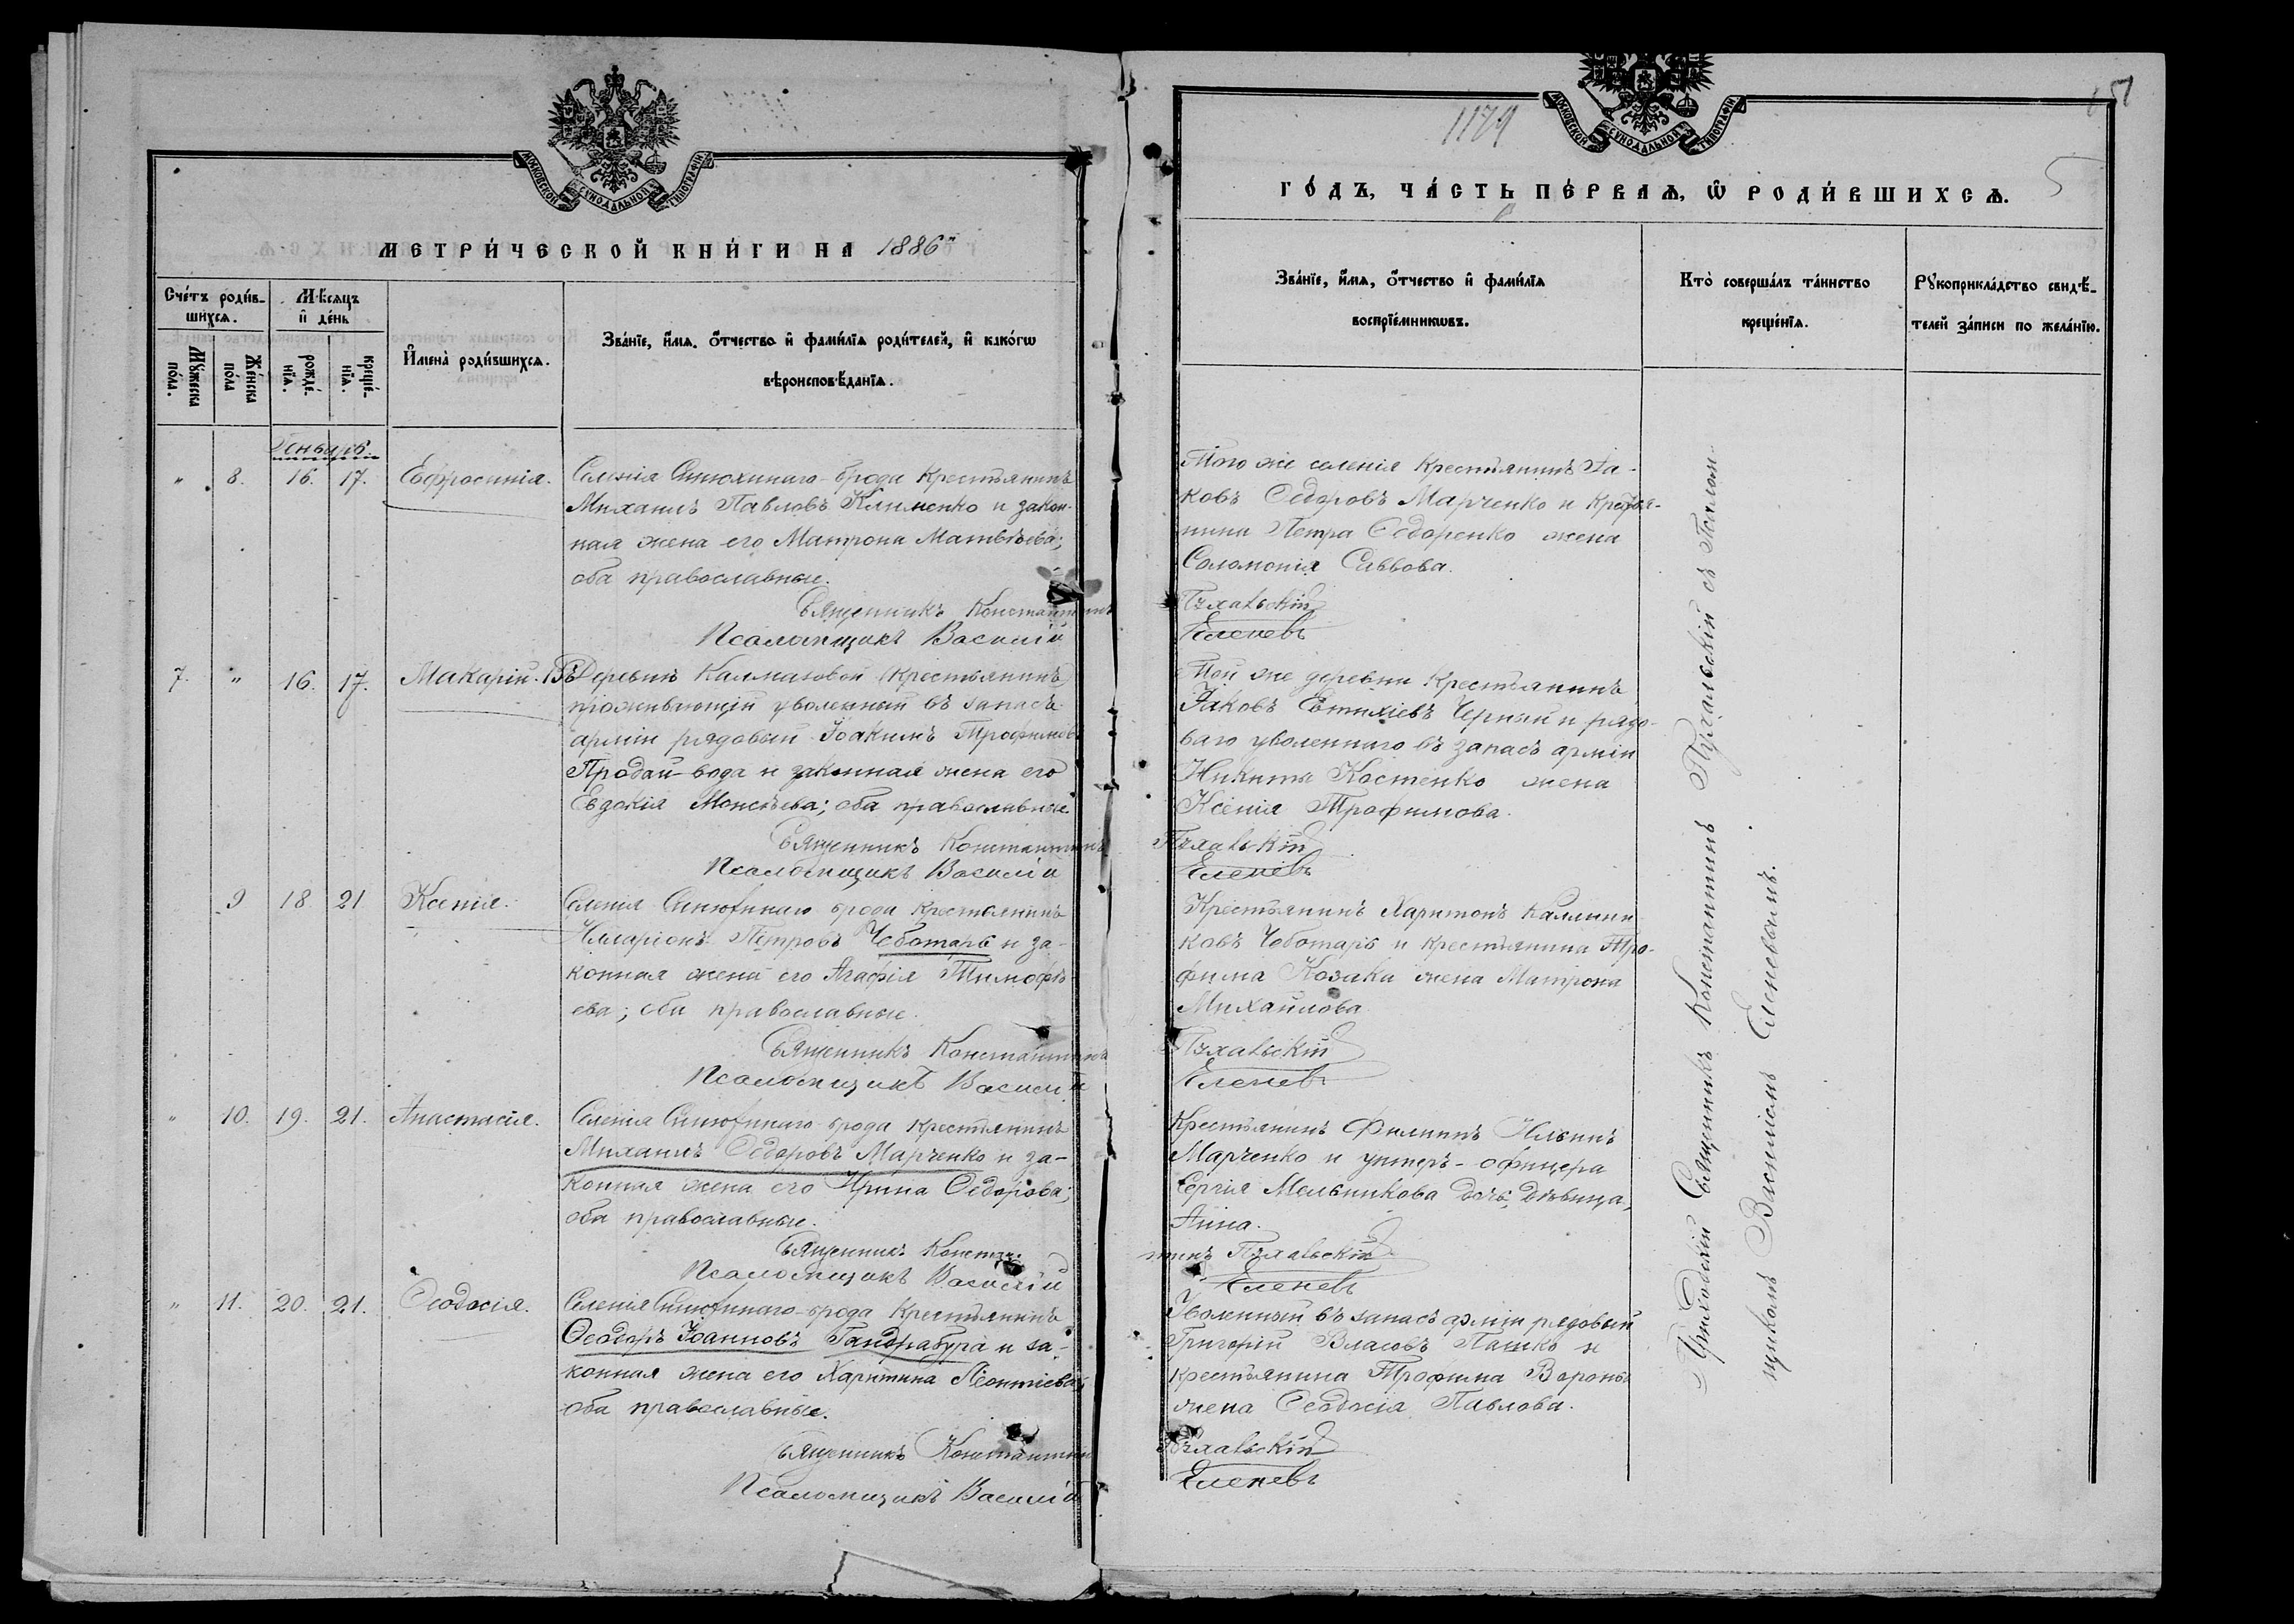 МОСКОВСКОЙ СѴНОДАЛЬНОЙ ТИПОГРАФІИ
МЕТРИ́ЧЕСКОЙ КНИ́ГИ НА 1886й
Сче́тъ роди́в-
шихсѧ.
Мѣ́сѧцъ
и҆ де́нь
Мꙋ́жеска
по́ла.
Же́нска
по́ла
рожде́-
нїѧ.
креще́-
нїѧ.
И҆мена̀ роди́вшихсѧ.
Зва́нїе, и҆́мѧ, ѻ҆́тчество и҆ фами́лїѧ роди́телей, и҆ како́гѡ
вѣроисповѣ́данїѧ.
Январь
" 8. 16. 17. Евфросинія.
Селенія Синюхинаго-брода крестьянинъ
Михаилъ Павловъ Клименко и закон-
ная жена его Матрона Матвѣева;
оба православные.
Священникъ Константинъ
Псаломщикъ Василій
7. " 16. 17. Макарій.
Въ Деревнѣ Калмазовой (крестьянинъ)
проживающій уволенный въ запасъ
арміи рядовый Іоакимъ Трофимовъ
Продай-вода и законная жена его
Евдокія Моисѣева; оба православные.
Священникъ Константинъ
Псаломщикъ Василій
9 18 21 Ксенія.
Селенія Синюхинаго брода крестьянинъ
Илларіонъ Петровъ Чеботарь и за-
конная жена его Агафія Тимофѣ-
ева; оба православные.
Священникъ Константинъ
Псаломщикъ Василій
" 10. 19. 21. Анастасія.
Селенія Синюхинаго-брода крестьянинъ
Михаилъ Ѳедоровъ Марченко и за-
конная жена его Ирина Ѳедорова;
оба православные.
Священникъ Констан-
Псаломщикъ Василій
" 11. 20. 21. Ѳеодосія.
Селенія Синюхинаго-брода крестьянинъ
Ѳеодоръ Іоанновъ Гандрабура и за-
конная жена его Харитина Леонтіева;
оба православные.
Священникъ Константинъ
Псаломщикъ Василій
МОСКОВСКОЙ СѴНОДАЛЬНОЙ ТИПОГРАФІИ
1179
51
5
ГО́ДЪ, ЧА́СТЬ ПЕ́РВАѦ, Ѡ҆ РОДИ́ВШИХСѦ.
Зва́нїе, и҆́мѧ, ѻ҆́тчество и҆ фами́лїѧ
воспрїе́мникѡвъ.
Кто̀ соверша́лъ та́инство
креще́нїѧ.
Рꙋкоприкла́дство свидѣ́-
телей за́писи по жела́нїю.
Того же селенія крестьянинъ Іа-
ковъ Ѳедоровъ Марченко и крестья-
нина Петра Ѳедоренко жена
Соломонія Саввова.
Пухальскій
Еленевъ
Той же деревни крестьянинъ
Іаковъ Евтихіевъ Черный и рядо-
ваго уволеннаго въ запасъ арміи
Никиты Костенко жена
Ксенія Трофимова.
Пухальскій
Еленевъ
Крестьянинъ Харитонъ Каллини-
ковъ Чеботарь и крестьянина Тро-
фима Козака жена Матрона
Михайлова
Пухальскій
Еленевъ
Крестьянинъ Филиппъ Ильинъ
Марченко и унтеръ-офицера
Сергія Мельникова дочь, дѣвица,
Анна.
тинъ Пухальскій
Еленевъ
Уволенный въ запасъ арміи рядовый
Григорій Власовъ Пашко и
крестьянина Трофима Вороны
жена Ѳеодосія Павлова.
Пухальскій
Еленевъ
Приходскій Священникъ Константинъ Пухальскій съ Псалом-
щикомъ Василіемъ Еленевымъ.